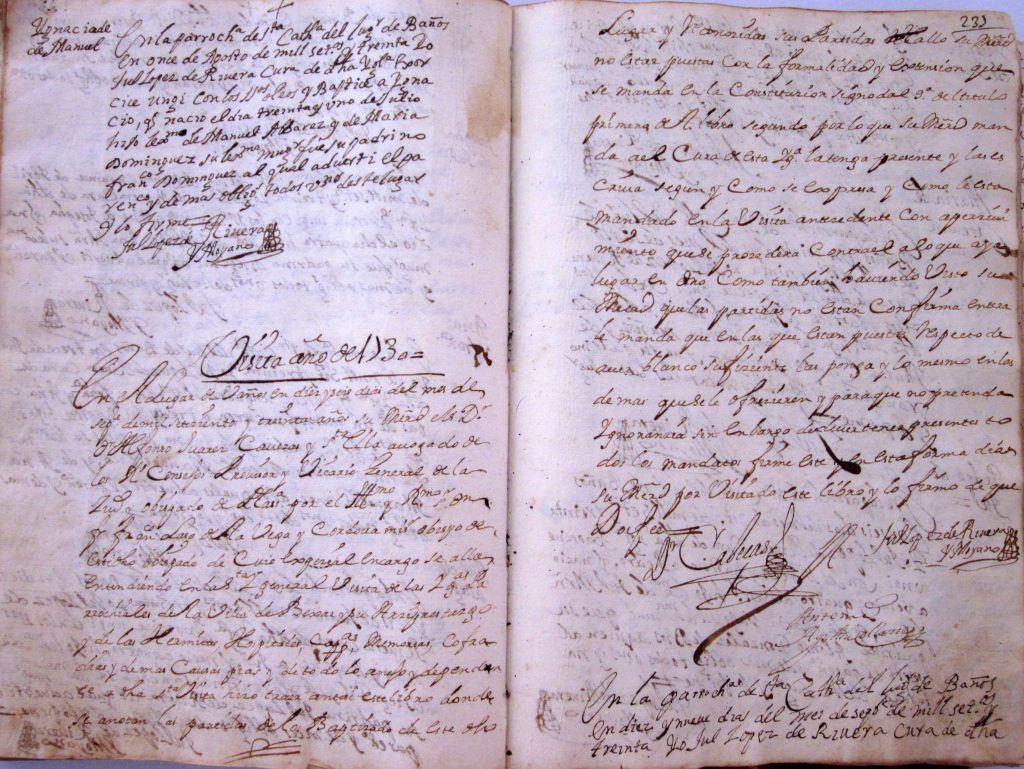 Ygnacio de
de Manuel
En la parrocha. de Sta. Catha. del lugr. de Baños
en once de Agosto de mill setos. treinta Yo
Jul Lopez de Rivera Cura de dha
ungi con los Stos. oleos y Baptice a Ygna
cio, q. nacio el dia treinta y uno de Julio
hijo de Manuel Albarez y de Maria
Dominguez su muger fue su padrino
franco. Dominguez al qual adverti el pa
rentco. y de mas oblig. todos vznos. deste lugar
y lo firme
Jul Lopez de Rivera
y Moyano
Visita año de 1730=
En el lugar de Vaños en diez y seis dias del mes de
sepe. de mil setecientos y treinta años, su Mrd el Sr. Dr.
Dn Alfonso Suarez Cavezas y avogado de
los Rs. Consejos Provisor y Vicario General de la
Ziud y obispado de por el Illmo y Rmo Sr. Dn
fr. franco. Laso de la Vega y Cordova mi obispo de
este dho obispado de Cuio expezial encargo se alla
entendiendo en la Sta. General Visita de las Ygas. Pa
rrochiales de la Villa de Bexar y su Arziprestazgo
y de las Hermitas, Hospitales, Capas. Memorias, Cofra
dias y demas Causas pias y de todo lo anejo y dependien
te a dha Sta. Visita hizo traer ante si este libro donde
se anotan las partidas de los Baptizados de este dho
233
Lugar y reconozidas sus Partidas allo su Mrd
no estar puestas con la formalidad y extension que
se manda en la Constituzion signodal 9a. del titulo
primero del libro segundo por lo que su Mrd man
da a el Cura de esta Yga. la tenga presente y las es
criva segun y como se expresa y como le esta
mandado en la Visita antezedente con apercivi
miento que se prozedera contra el a lo que aya
lugar en dro. Como tambien haviendo Visto su
Merd que las partidas no estan con firma entera
le manda que en las que estan puestas respecto de
aver blanco sufiziente las ponga y lo mismo en las
de mas que se le ofrezieren y para que no pretenda
Ygnoranzia sin embargo de que deve tener presentes to
dos los mandatos firme este y en esta forma dia
su Mrd por Visitado este libro y lo firmo de que
Doi fee
Dr. Cabezas
Jul Lopez de Rivera
y Moyano
Ante mi
En la parrocha. de Sta. Catha. del lugr. de Baños
en diez y nueve dias del mes de sepbe. de mill setos.
treinta Yo Jul Lopez de Rivera Cura de dha